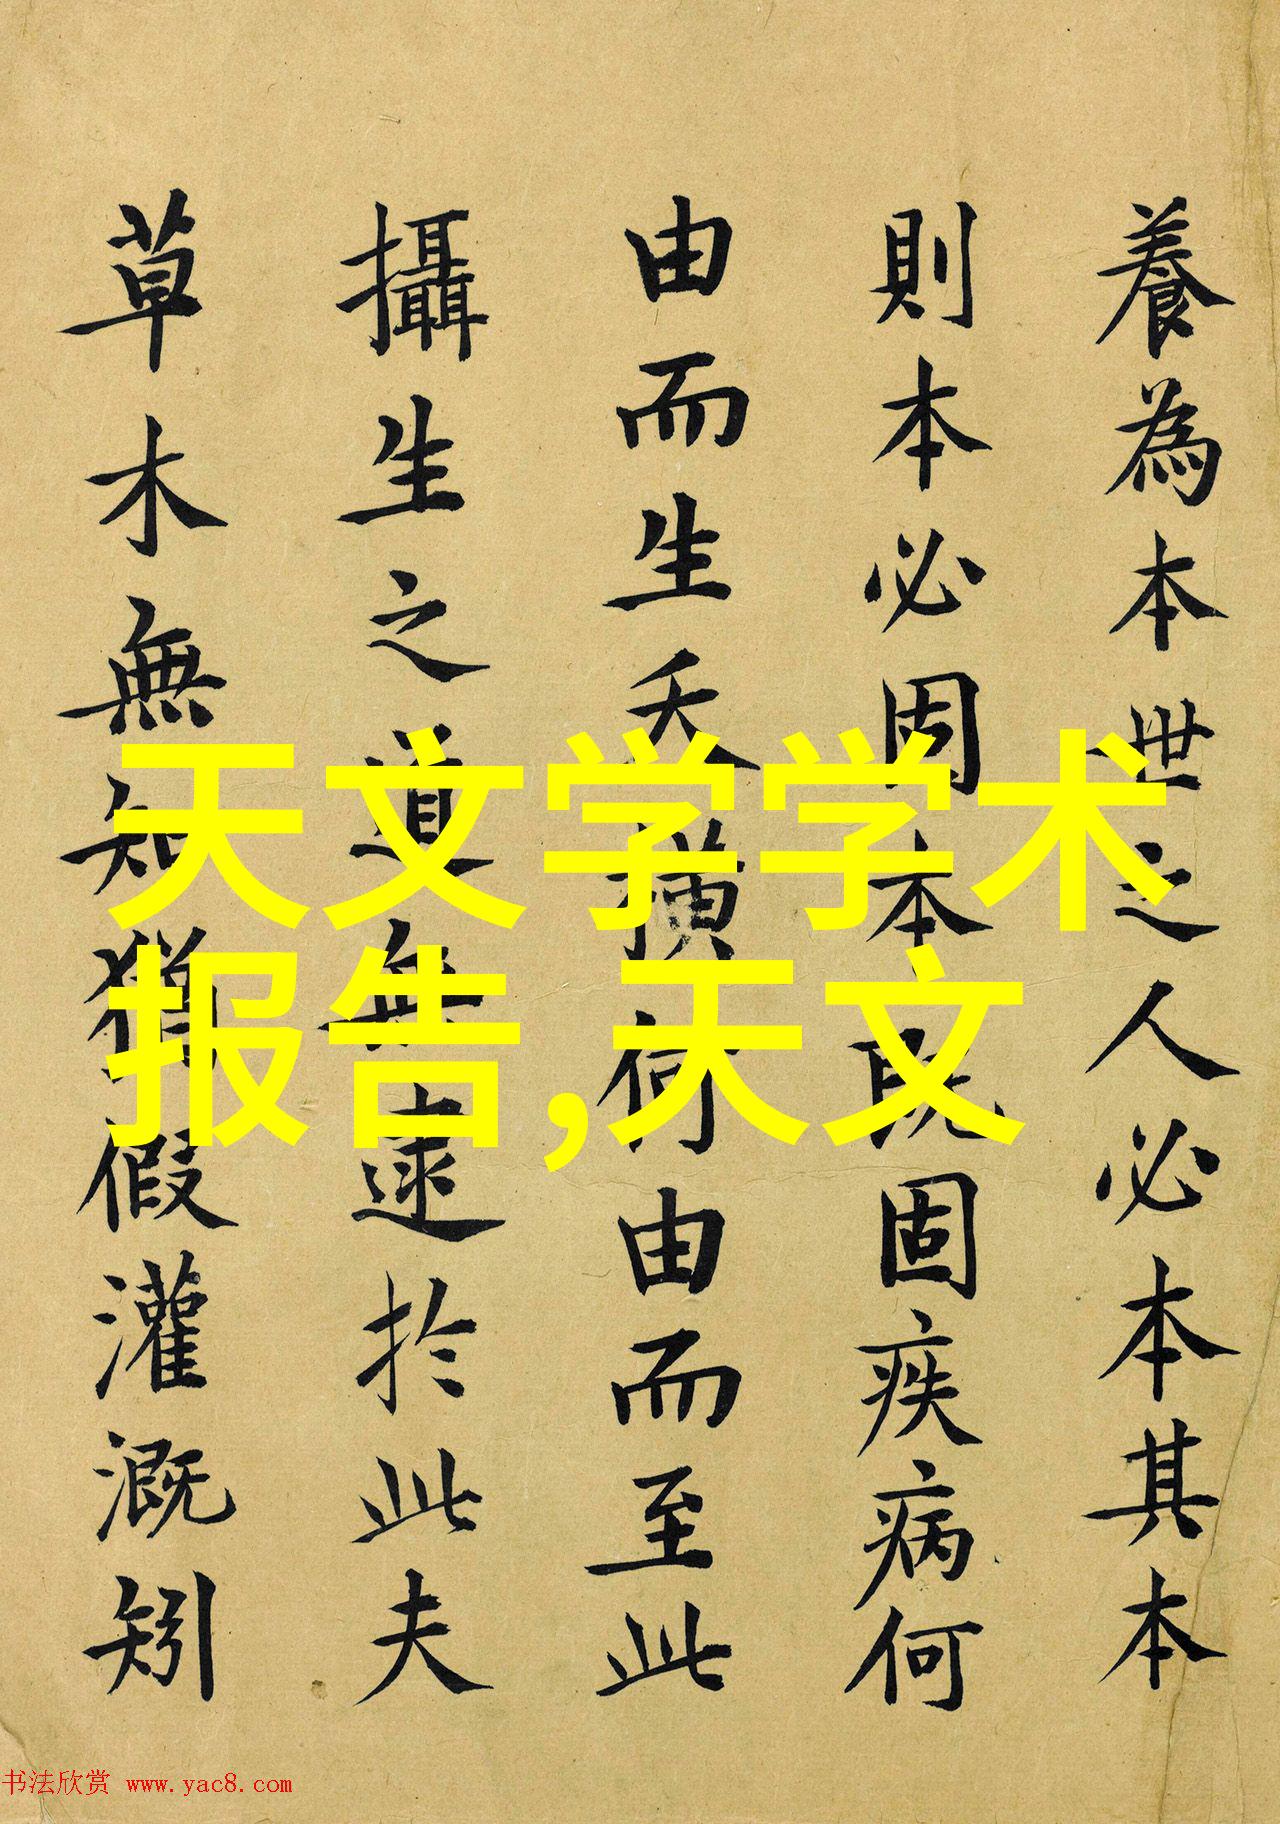 養為本世之人必本其本
則本必固本既固疾病何
由而生夭橫何由而至此
攝生之道無逮於此夫
草木無知猶假灌溉矧
天文学学术
报告,天文
书法欣赏 www.yac8.com